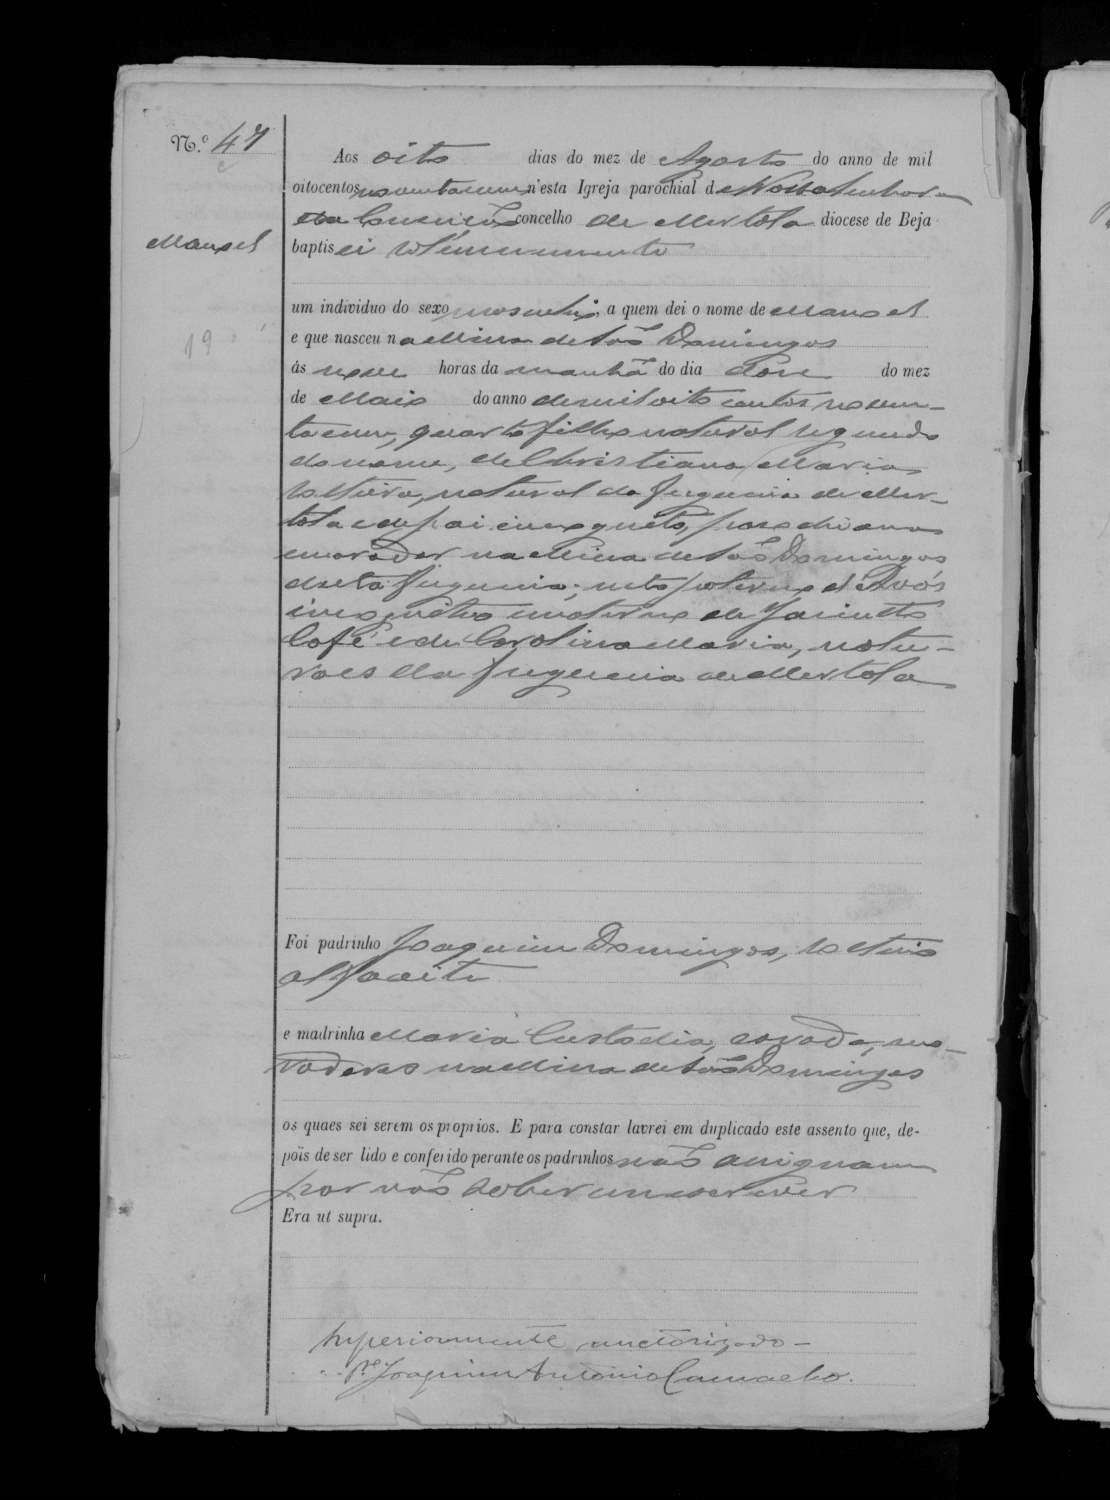 N.º 47
Manoel
Aos oito dias do mez de Agosto do anno de mil
oitocentos noventa e um n'esta Igreja parochial de Nossa Senhora
da Conceição concelho de Mertola diocese de Beja
baptisei solemnemente
um individuo do sexo masculino, a quem dei o nome de Manoel
e que nasceu na Mina de São Domingos
ás nove horas da manhã do dia doze do mez
de Maio do anno de mil oito centos noven-
ta e um, quarto filho natural segundo
do nome, de Christiana Maria
solteira, natural da freguezia de Mer-
tola e de pai incognito, parochiana
morador na Mina de São Domingos
desta freguezia; neto paterno d'Avós
incognitos e materno de Jacintho
Café e de Carolina Maria, natu-
raes da freguezia de Mertola
Foi padrinho Joaquim Domingos, solteiro
alfaiate
e madrinha Maria Custodia, casada, mo-
radores na Mina de São Domingos
os quaes sei serem os proprios. E para constar lavrei em duplicado este assento que, de-
pois de ser lido e conferido perante os padrinhos não assignam
por não saberem escrever
Era ut supra.
Superiormente auctorizado -
P.e Joaquim Antonio Camacho.